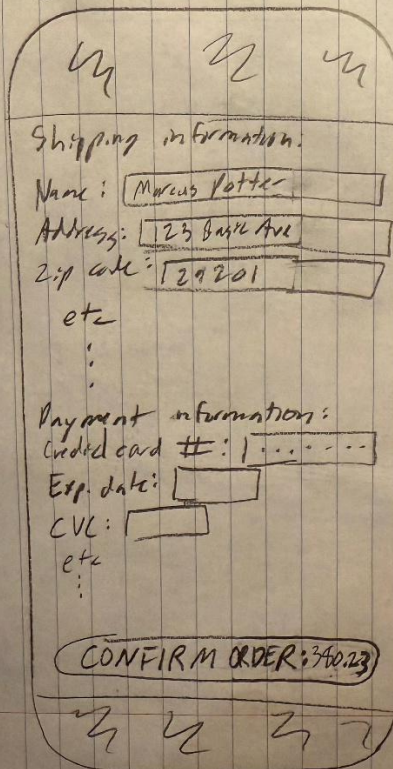 Shipping information:
Name: Marcus Potter
Address: 123 Ave
Zip code: 29201
etc
Payment information:
Credit card #: .......
Exp. date:
CVC:
etc
CONFIRM ORDER: 340.23